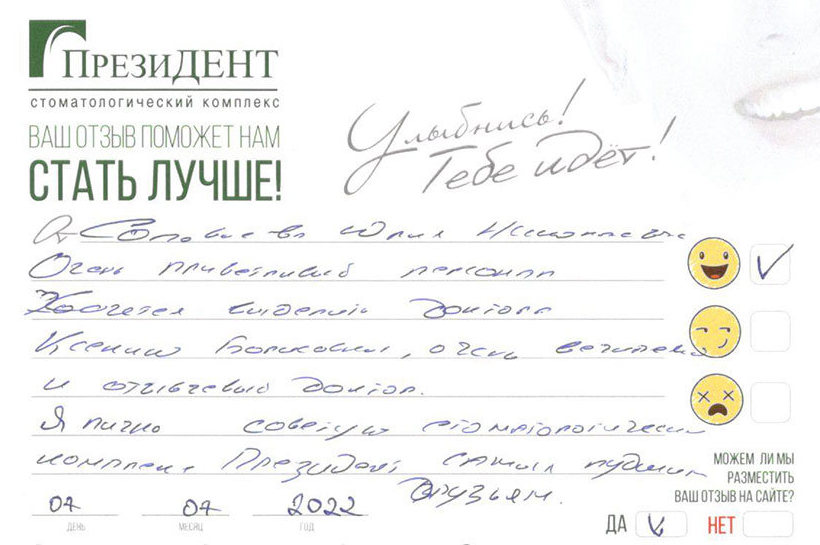 ПРЕЗИДЕНТ
СТОМАТОЛОГИЧЕСКИЙ КОМПЛЕКС
ВАШ ОТЗЫВ ПОМОЖЕТ НАМ
СТАТЬ ЛУЧШЕ!
Улыбнись!
Тебе идёт!
Соловьева Юлия Николаевна
Очень приветливый персонал
Хочется выделить доктора
Ксению Борисовну, очень
и отзывчевый доктор.
Я лично советую стоматологический
комплекс Президент самым лучшим
друзьям.
04 04 2022
ДЕНЬ МЕСЯЦ ГОД
МОЖЕМ ЛИ МЫ
РАЗМЕСТИТЬ
ВАШ ОТЗЫВ НА САЙТЕ?
ДА НЕТ